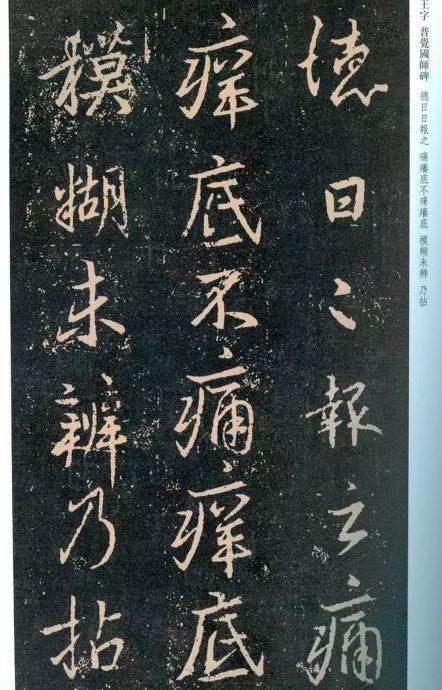 王字 普覺國師碑 德日日報之 痛癢底不痛癢底 模糊未辨 乃拈
德日〻報之痛
痒底不痛痒底
糢糊未辨乃拈